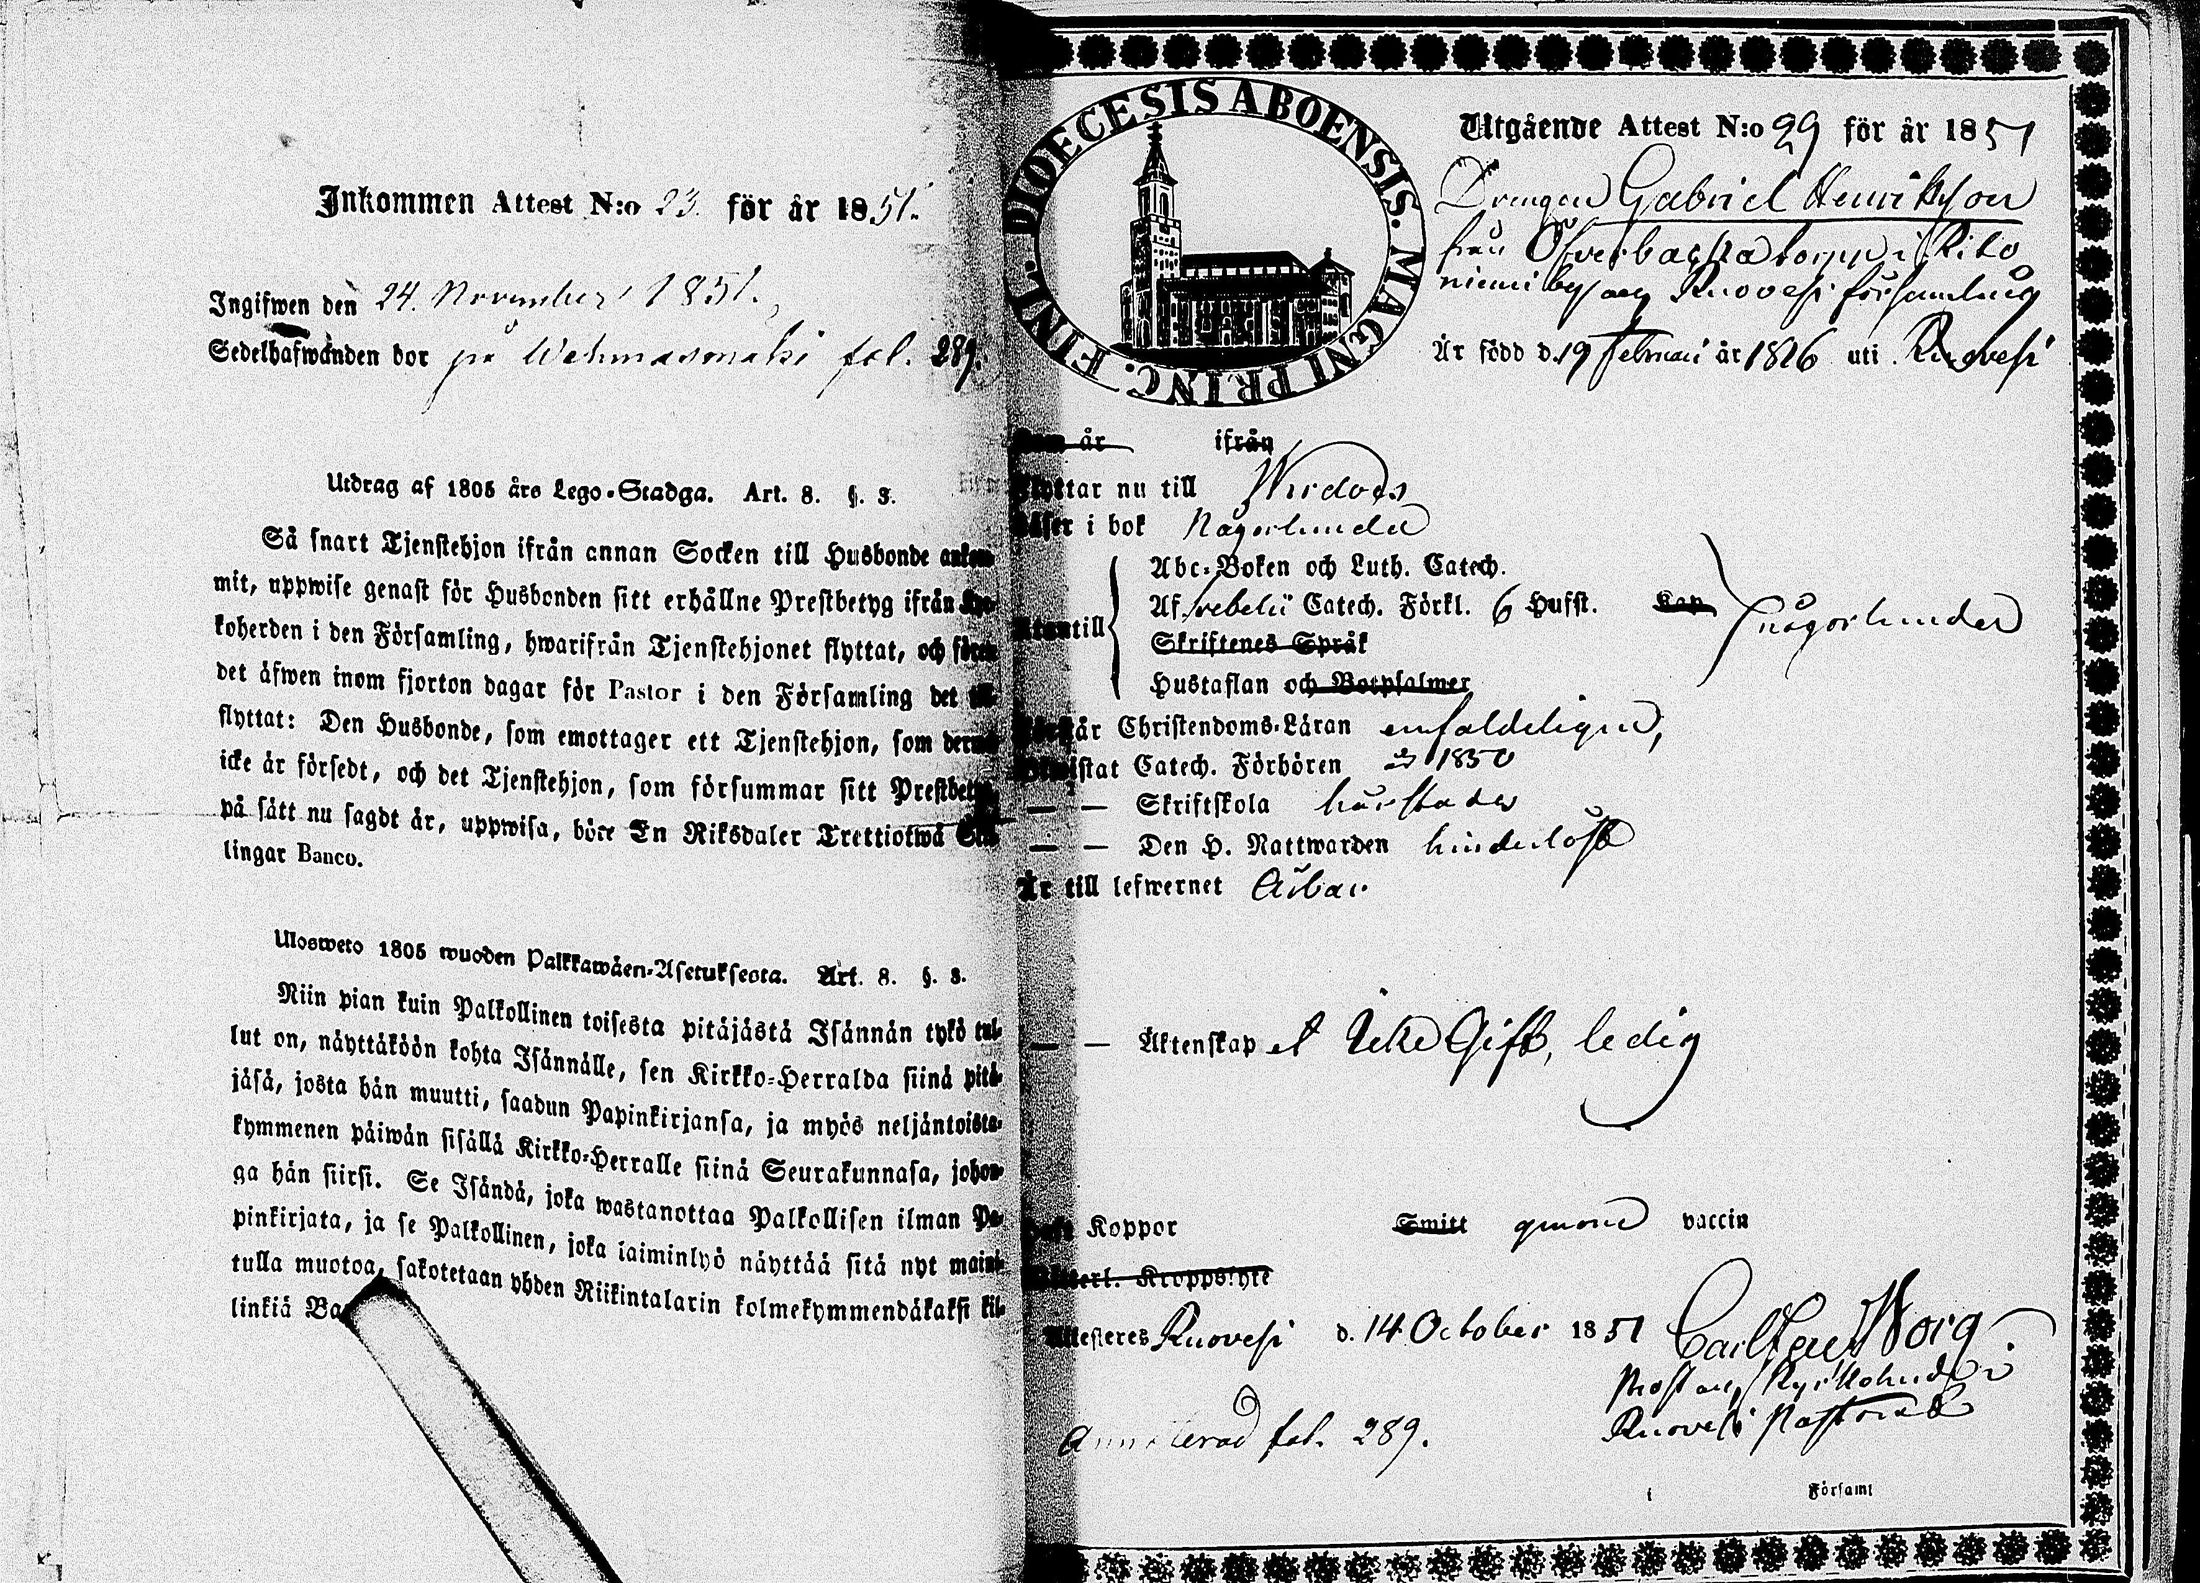 Inkommen Attest N:o 23. för år 1851.
Ingifwen den 24. November 1851.
Sedelhafwanden bor på Wehmasmäki fol. 289.
Utdrag af 1805 års Lego-Stadga. Art. 8. §. 3.
Så snart Tjenstehjon ifrån annan Socken till Husbonde ankom-
mit, uppwise genast för Husbonden sitt erhållne Prestbetyg ifrån Kyr-
koherden i den Församling, hwarifrån Tjenstehjonet flyttat, och förete
det äfwen inom fjorton dagar för Pastor i den Församling det till-
flyttat: Den Husbonde, som emottager ett Tjenstehjon, som dermed
icke är försedt, och det Tjenstehjon, som försummar sitt Prestbetyg,
på sätt nu sagdt är, uppwisa, böte En Riksdaler Trettiotwå Skil-
lingar Banco.
Ulosweto 1805 wuoden Palkkawäen-Asetuksesta. Art. 8. §. 3.
Niin pian kuin Palkollinen toisesta pitäjästä Isännän tykö tul-
lut on, näyttäköön kohta Isännälle, sen Kirkko-Herralda siinä pitä-
jäsä, josta hän muutti, saadun Papinkirjansa, ja myös neljäntoista-
kymmenen päiwän sisällä Kirkko-Herralle siinä Seurakunnasa, johon-
ga hän siirsi. Se Isändä, joka wastanottaa Palkollisen ilman Pa-
pinkirjata, ja se Palkollinen, joka laiminlyö näyttää sitä nyt mainit-
tulla muotoa, sakotetaan yhden Riikintalarin kolmekymmendäkaksi kil-
linkiä Ba
DIOECESIS ABOENSIS. MAGNI PRINC. FINL.
Utgående Attest N:o 29 för år 1851
Drengen Gabriel Henriksson
från Öfverbacka torpp i Rito
niemi by af Ruovesi församling
Är född d. 19 Februari år 1826 uti Ruovesi
Som år ifrån
Flyttar nu till Wirdois
Läser i bok Någorlunda
Utantill
Abc-Boken och Luth. Catech.
Af Svebelii Catech. Förkl. 6 Hufst. Kap
Skriftenes Språk
Hustaflan och Botpsalmer
någorlunda
Förstår Christendoms-Läran enfaldeligen,
Bewistat Catech. Förhören år 1850
— — Skriftskola härstädes
— — Den H. Nattwarden hinderlöst
Är till lefwernet Ärbar
— — Äktenskap et Icke Gift, ledig
Haft Koppor Smitt genom vaccin
Ytterl. Kroppslyte
Attesteres Ruovesi d. 14 October 1851 Carl Borg
Prost och Kyrkoherde i
Ruovesi Pastorat
Annoterad fol. 289.
i Församl